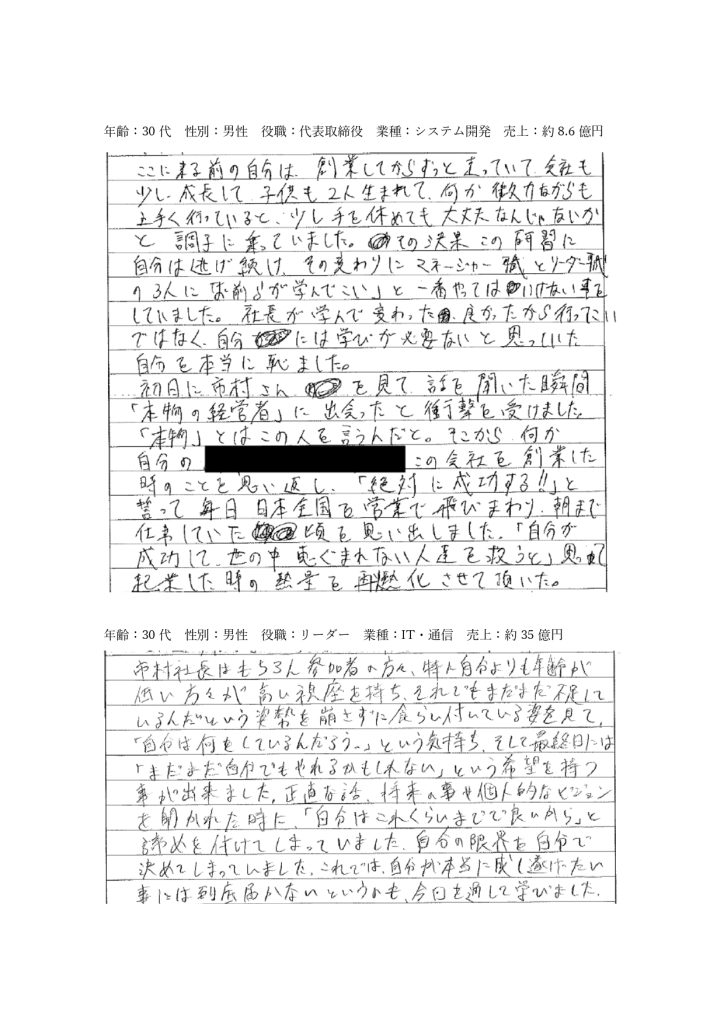 年齢：30 代　性別：男性　役職：代表取締役　業種：システム開発　売上：約 8.6 億円
ここに来る前の自分は、創業してからずっと走っていて、会社も
少し成長して、子供も2人生まれて、何か微力ながらも
上手く行っていると、少し手を休めても大丈夫なんじゃないか
と調子に乗っていました。その決果この研習に
自分は逃げ続け、その変わりにマネージャー職とリーダー職
の3人に「お前らが学んでこい」と一番やってはいけない事を
していました。社長が学んで変わった、良かったから行ってこい
ではなく、自分には学びが必要ないと思っていた
自分を本当に恥ました。
初日に市村さんを見て、話を聞いた瞬間
「本物の経営者」に出会ったと衝撃を受けました。
「本物」とはこの人を言うんだと。そこから何か
自分の この会社を創業した
時のことを思い返し、「絶対に成功する!!」と
誓って毎日日本全国を営業で飛びまわり、朝まで
仕事していた頃を思い出しました。「自分が
成功して、世の中恵ぐまれない人達を救うと」思って
起業した時の熱量を再燃化させて頂いた。
年齢：30 代　性別：男性　役職：リーダー　業種：IT・通信　売上：約 35 億円
市村社長はもちろん参加者の方々、特に自分よりも年齢が
低い方々が高い視座を持ち、それでもまだまだ不足して
いるんだという姿勢を崩さずに食らい付いている姿を見て、
「自分は何をしているんだろう…」という気持ち、そして最終日には
「まだまだ自分でもやれるかもしれない」という希望を持つ
事が出来ました。正直な話、将来の事や個人的なビジョン
を聞かれた時に、「自分はこれくらいまでで良いから」と
諦めを付けてしまっていました。自分の限界を自分で
決めてしまっていました。これでは、自分が本当に成し遂げたい
事には到底届かないというのも、今回を通して学びました。